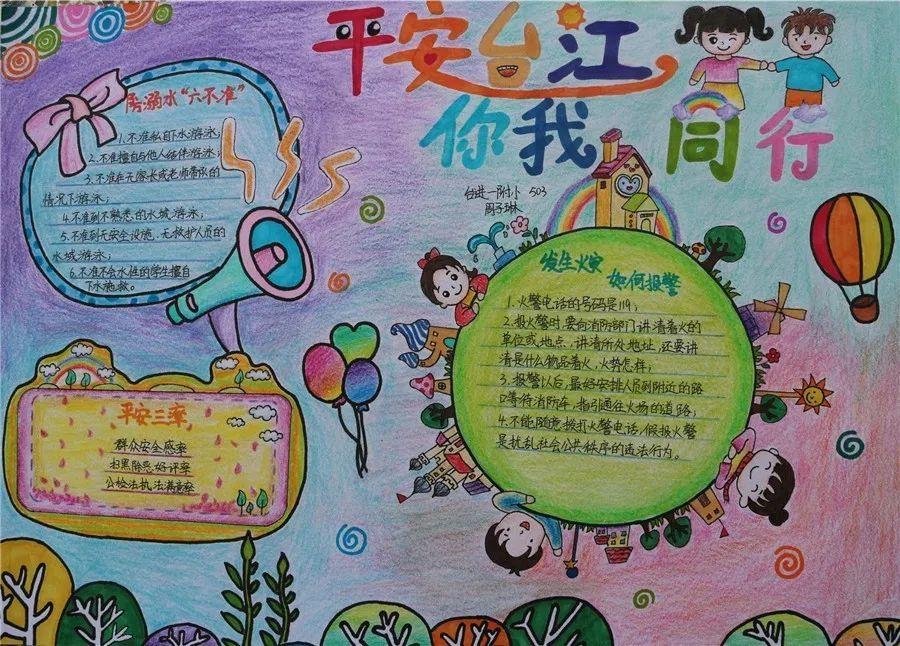 平安台江
你我同行
台进一附小 503
周子琳
防溺水“六不准”
1.不准私自下水游泳；
2.不准擅自与他人结伴游泳；
3.不准在无家长或老师带队的
情况下游泳；
4.不准到不熟悉的水域游泳；
5.不准到无安全设施、无救护人员的
水域游泳；
6.不准不会水性的学生擅自
下水施救。
平安三率
群众安全感率
扫黑除恶好评率
公检法执法满意率
发生火灾
如何报警
1.火警电话的号码是119；
2.报火警时要向消防部门讲清着火的
单位或地点，讲清所处地址，还要讲
清是什么物品着火，火势怎样；
3.报警以后，最好安排人员到附近的路
口等待消防车，指引通往火场的道路；
4.不能随意拨打火警电话，假报火警
是扰乱社会公共秩序的违法行为。